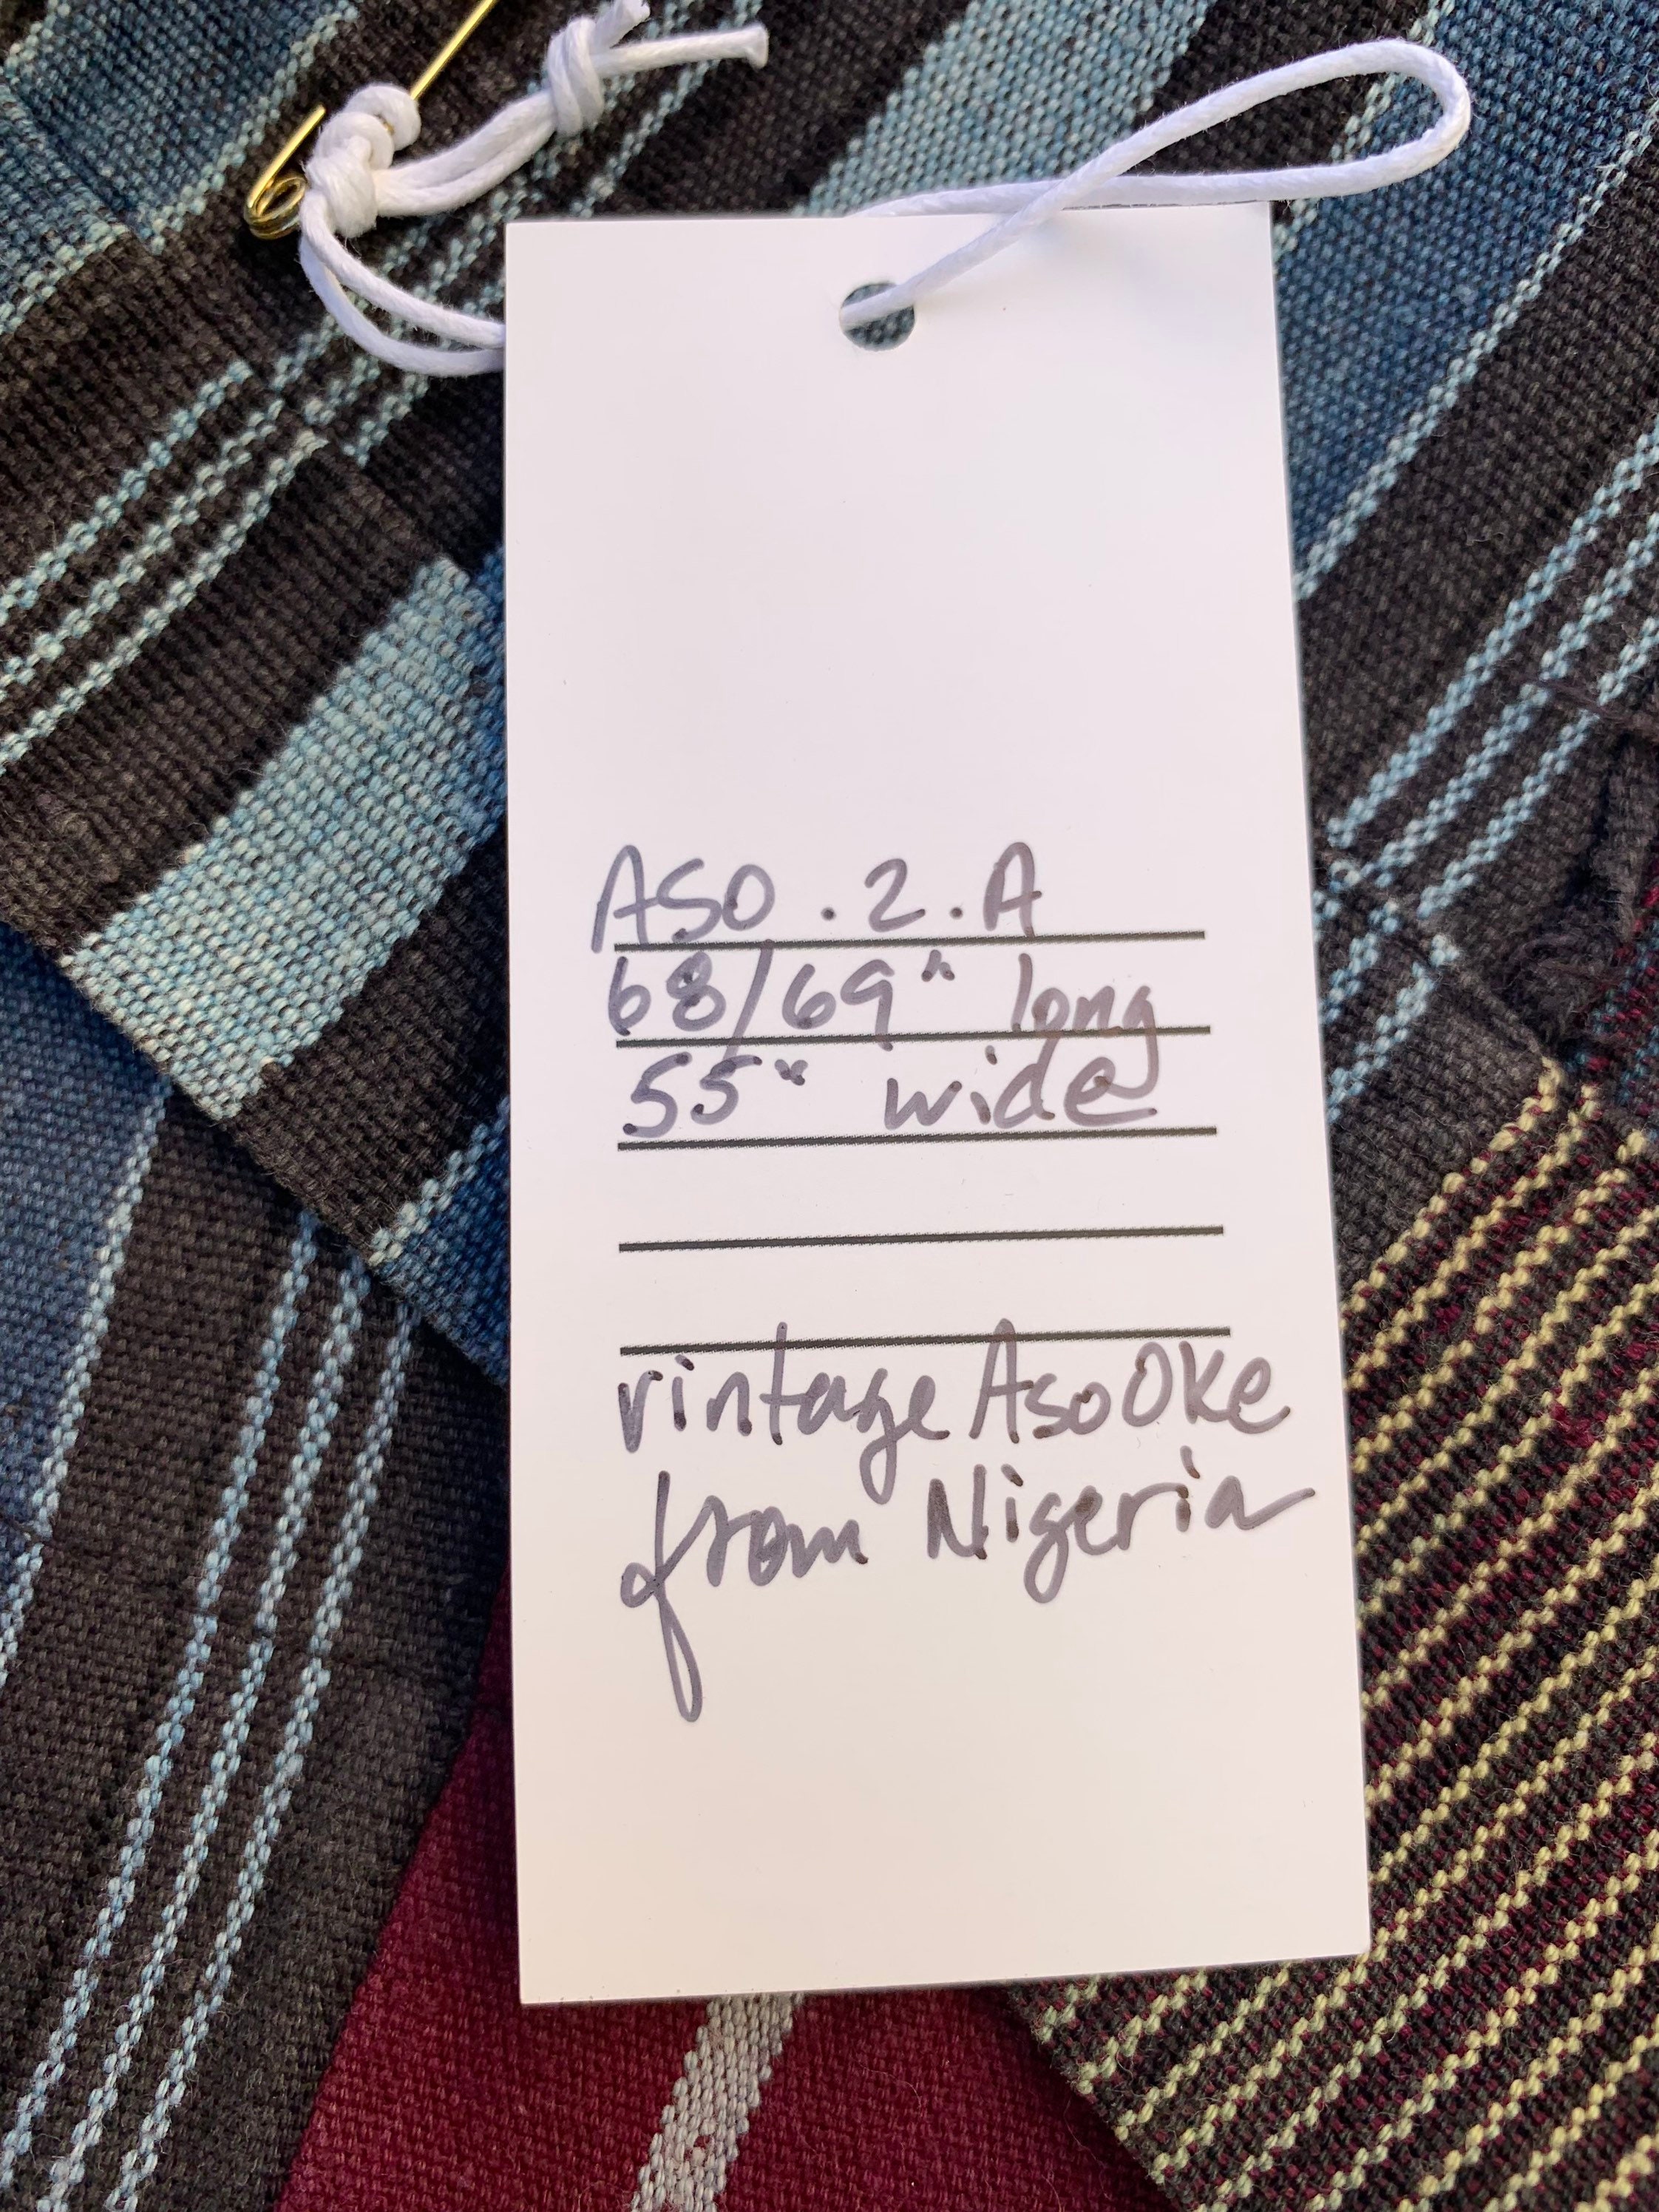 ASO . 2 . A
68/69" long
55" wide
vintage Aso Oke
from Nigeria